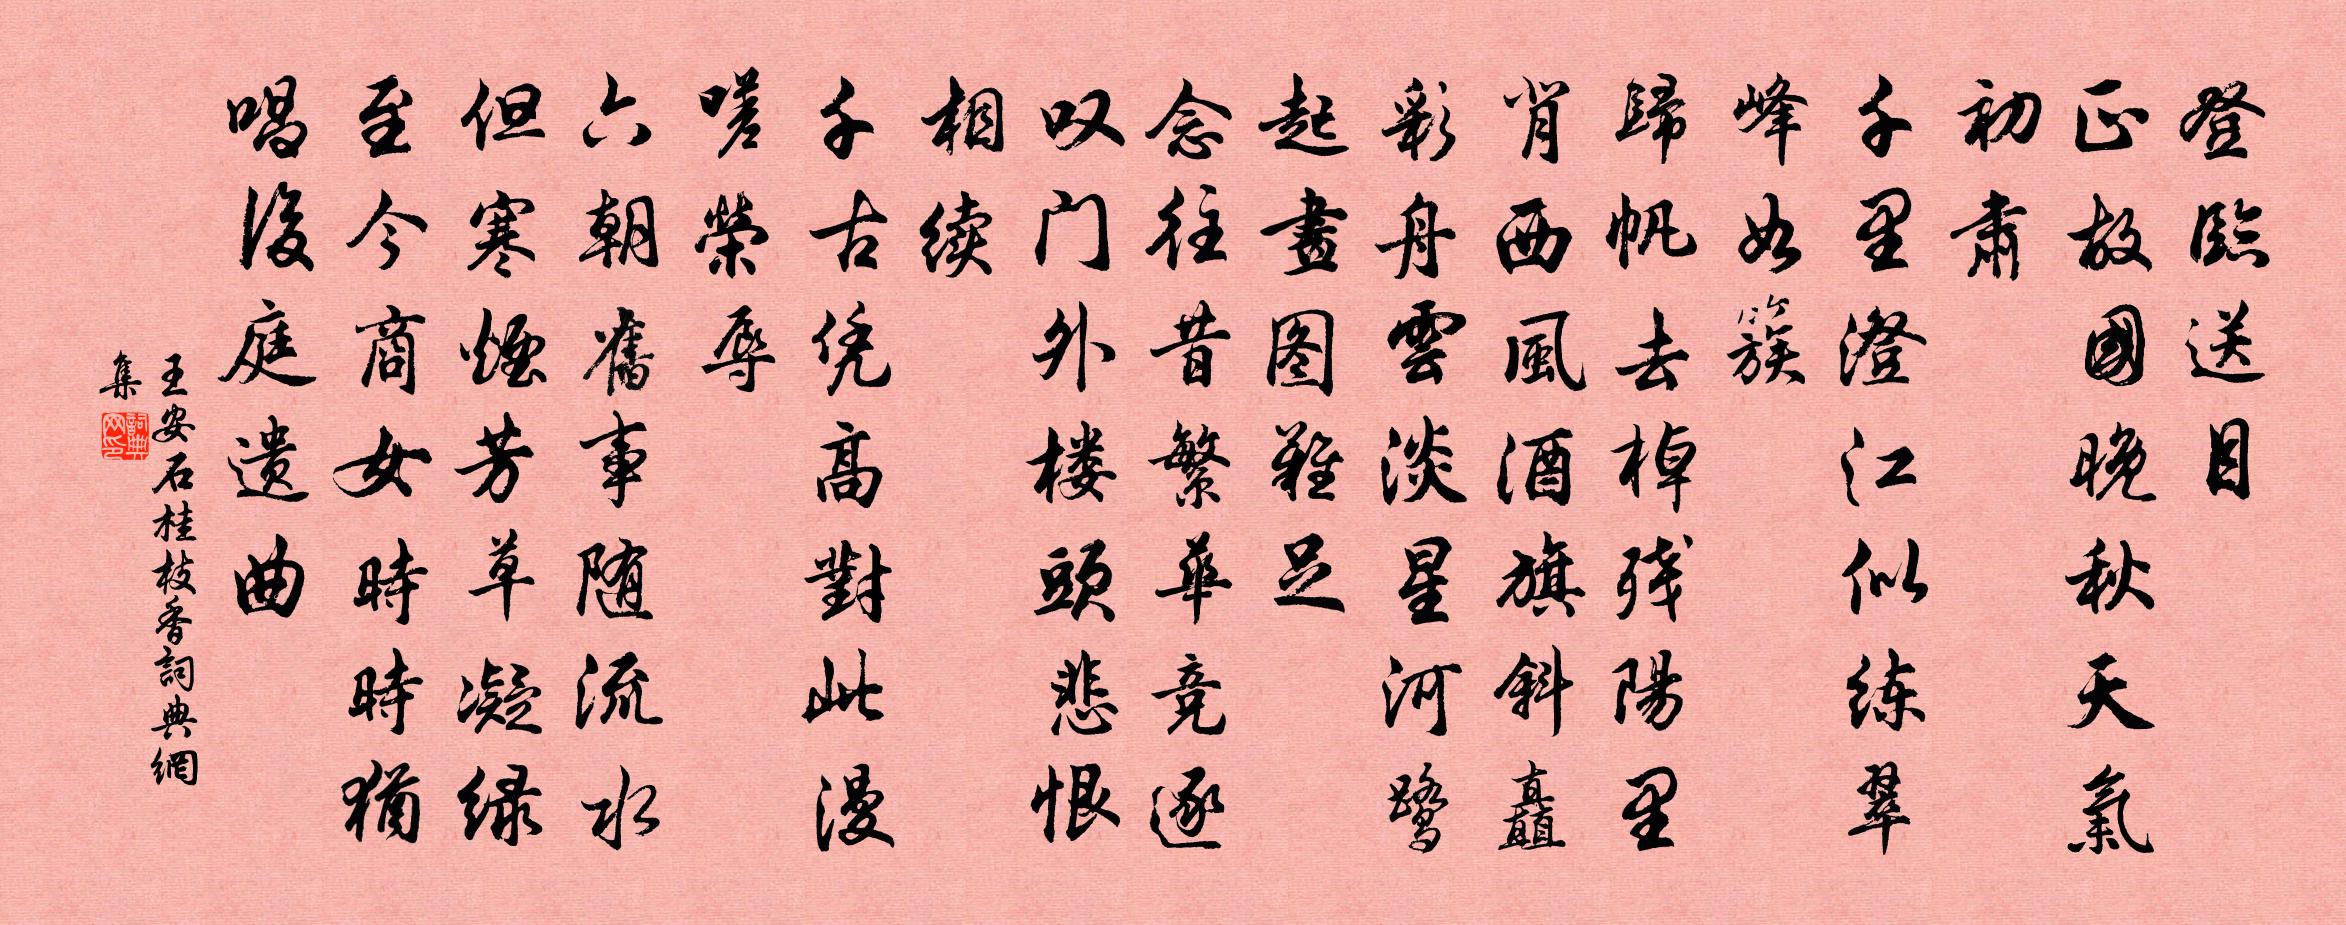 登臨送目
正故國晚秋天氣
初肅
千里澄江似练翠
峰如簇
歸帆去棹残陽里
背西風酒旗斜矗
彩舟雲淡星河鹭
起畫图難足
念往昔繁華竞逐
叹门外楼頭悲恨
相续
千古凭高對此漫
嗟榮辱
六朝舊事随流水
但寒煙芳草凝绿
至今商女時時猶
唱後庭遗曲
王安石桂枝香詞典網
集
詞典网印